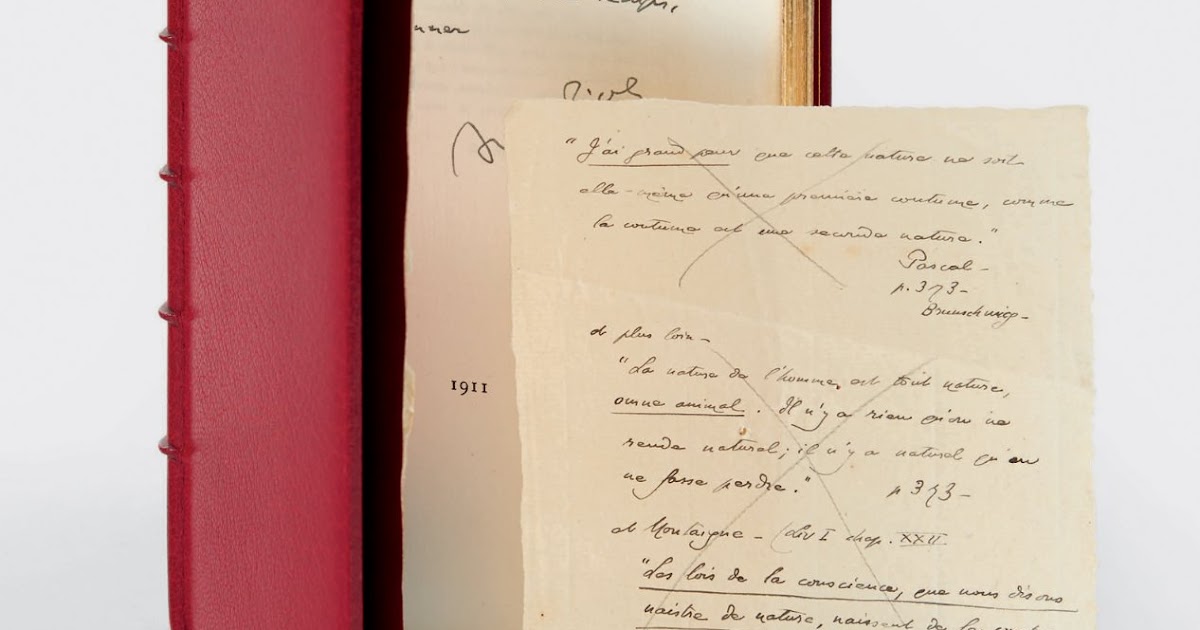 nner
1911
"J'ai grand peur que cette nature ne soit
elle-même qu'une première coutume, comme
la coutume est une seconde nature."
Pascal -
p. 373 -
Brunschvicg -
et plus loin -
"La nature de l'homme est tout nature,
omne animal. Il n'y a rien qu'on ne
rende naturel; il n'y a naturel qu'on
ne fasse perdre."
p 373 -
et Montaigne - (Liv I chap. XXII
"Les lois de la conscience, que nous disons
naistre de nature, naissent de la